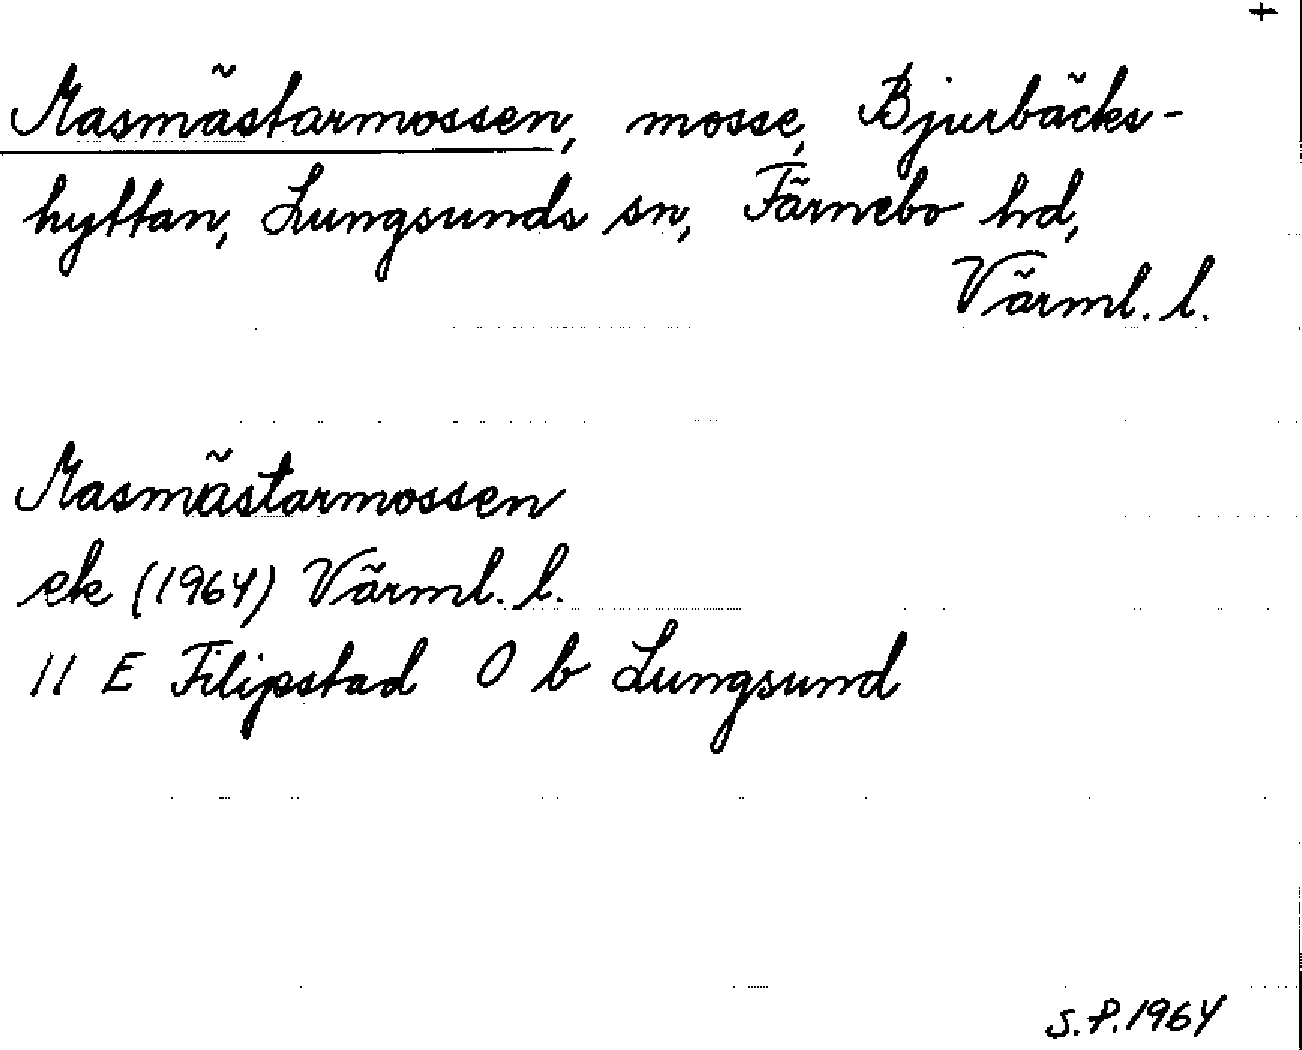 +
Masmästarmossen, mosse, Bjurbäcks-
hyttan, Lungsunds sn, Färnebo hd,
Värml. l.
Masmästarmossen
ek (1964) Värml. l.
11 E Filipstad 0 b Lungsund
S.P.1964